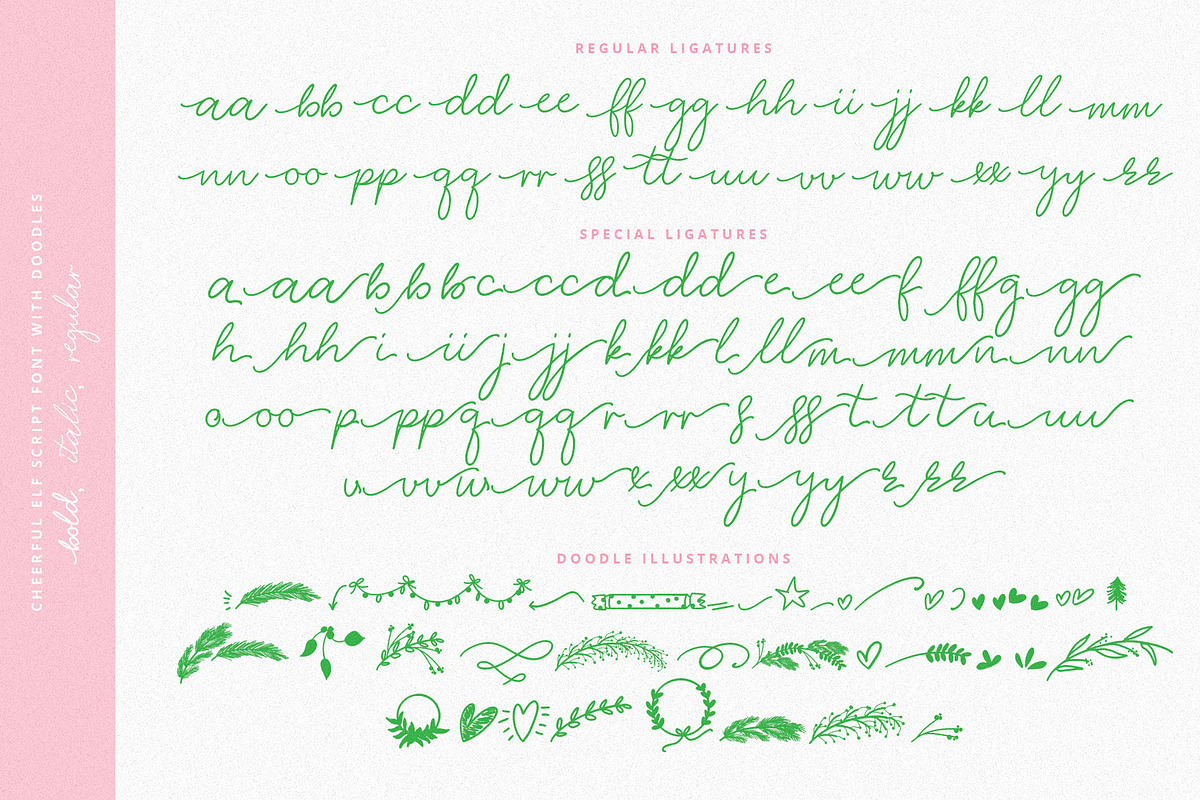 REGULAR LIGATURES
aa bb cc dd ee ff gg hh ii jj kk ll mm
nn oo pp qq rr ss tt uu vv ww xx yy zz
SPECIAL LIGATURES
a aa b bb b c cc d dd e ee f ff g gg
h hh i ii j jj k kk l ll m mm n nn
o oo p pp q qq r rr s ss t tt u uu
v vv w ww x xx y yy z zz
DOODLE ILLUSTRATIONS
CHEERFUL ELF SCRIPT FONT WITH DOODLES
bold, italic, regular